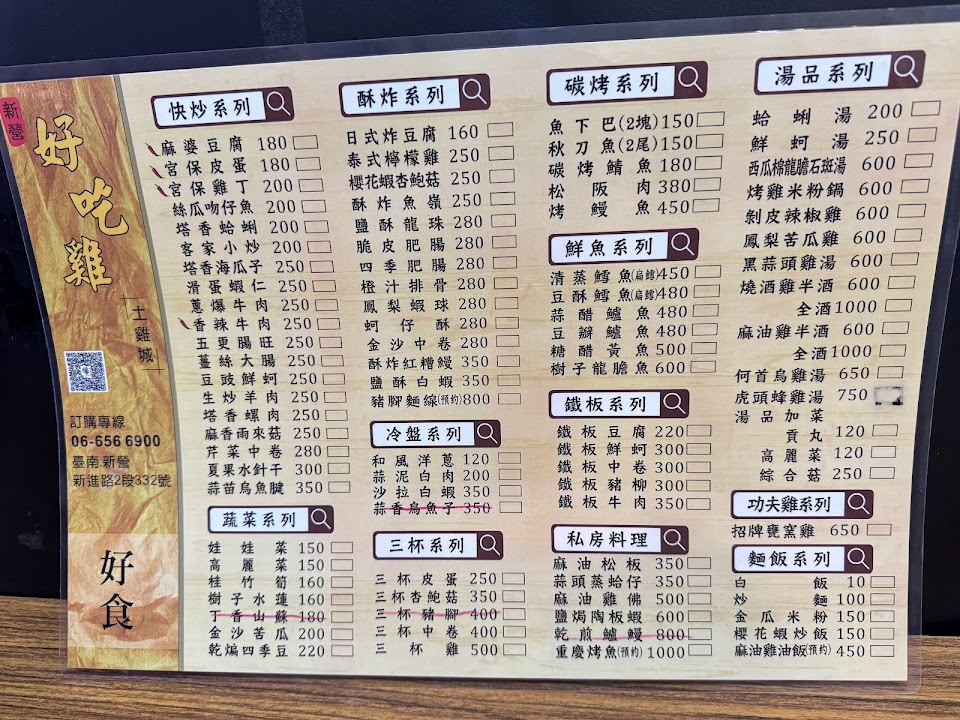 新營
好吃雞
土雞城
訂購專線
06-656 6900
臺南.新營
新進路2段332號
好食
快炒系列
麻婆豆腐 180
宮保皮蛋 180
宮保雞丁 200
絲瓜吻仔魚 200
塔香蛤蜊 200
客家小炒 200
塔香海瓜子 250
滑蛋蝦仁 250
蔥爆牛肉 250
香辣牛肉 250
五更腸旺 250
薑絲大腸 250
豆豉鮮蚵 250
生炒羊肉 250
塔香螺肉 250
麻香雨來菇 250
芹菜中卷 280
夏果水針干 300
蒜苗烏魚腱 350
蔬菜系列
娃娃菜 150
高麗菜 150
桂竹筍 160
樹子水蓮 160
丁香山蘇 180
金沙苦瓜 200
乾煸四季豆 220
酥炸系列
日式炸豆腐 160
泰式檸檬雞 250
櫻花蝦杏鮑菇 250
酥炸魚嶺 250
鹽酥龍珠 280
脆皮肥腸 280
四季肥腸 280
橙汁排骨 280
鳳梨蝦球 280
蚵仔酥 280
金沙中卷 280
酥炸紅糟鰻 350
鹽酥白蝦 350
豬腳麵線(預約)800
冷盤系列
和風洋蔥 120
蒜泥白肉 200
沙拉白蝦 350
蒜香烏魚子 350
三杯系列
三杯皮蛋 250
三杯杏鮑菇 350
三杯豬腳 400
三杯中卷 400
三杯雞 500
碳烤系列
魚下巴(2塊)150
秋刀魚(2尾)150
碳烤鯖魚 180
松阪肉 380
烤鰻魚 450
鮮魚系列
清蒸鱈魚(扁鱈)450
豆酥鱈魚(扁鱈)480
蒜醋鱸魚 480
豆瓣鱸魚 480
糖醋黃魚 500
樹子龍膽魚 600
鐵板系列
鐵板豆腐 220
鐵板鮮蚵 300
鐵板中卷 300
鐵板豬柳 300
鐵板牛肉 350
私房料理
麻油松板 350
蒜頭蒸蛤仔 350
麻油雞佛 500
鹽焗陶板蝦 600
乾煎鱸鰻 800
重慶烤魚(預約)1000
湯品系列
蛤蜊湯 200
鮮蚵湯 250
西瓜棉龍膽石斑湯 600
烤雞米粉鍋 600
剝皮辣椒雞 600
鳳梨苦瓜雞 600
黑蒜頭雞湯 600
燒酒雞半酒 600
全酒1000
麻油雞半酒 600
全酒1000
何首烏雞湯 650
虎頭蜂雞湯 750
湯品加菜
貢丸 120
高麗菜 120
綜合菇 250
功夫雞系列
招牌甕窯雞 650
麵飯系列
白飯 10
炒麵 100
金瓜米粉 150
櫻花蝦炒飯 150
麻油雞油飯(預約)450